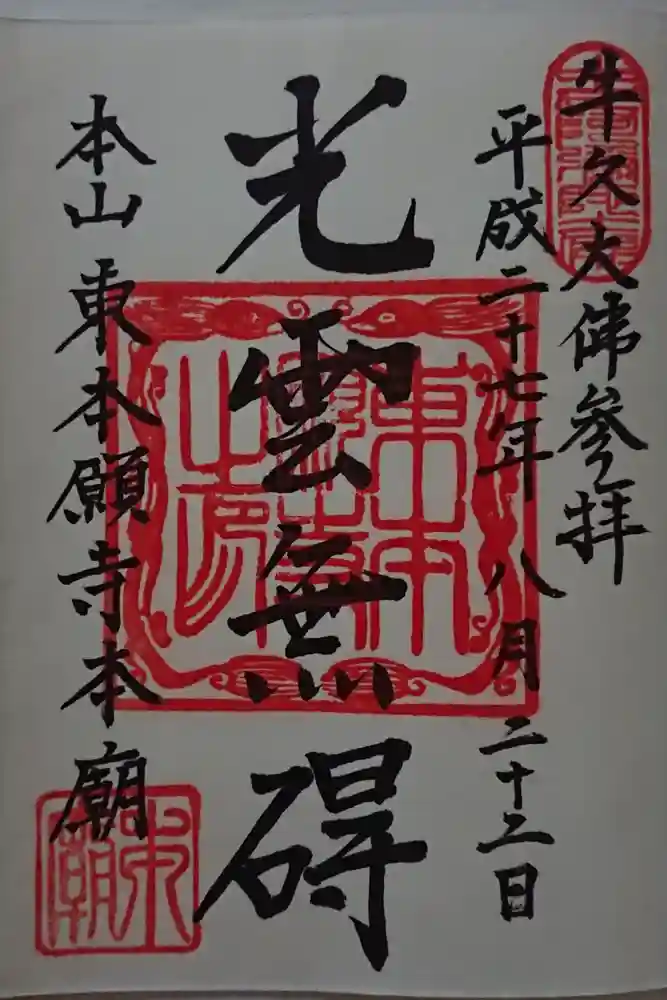 牛久大佛参拝
平成二十七年八月二十二日
光雲無碍
本山東本願寺本廟
東本願寺之印